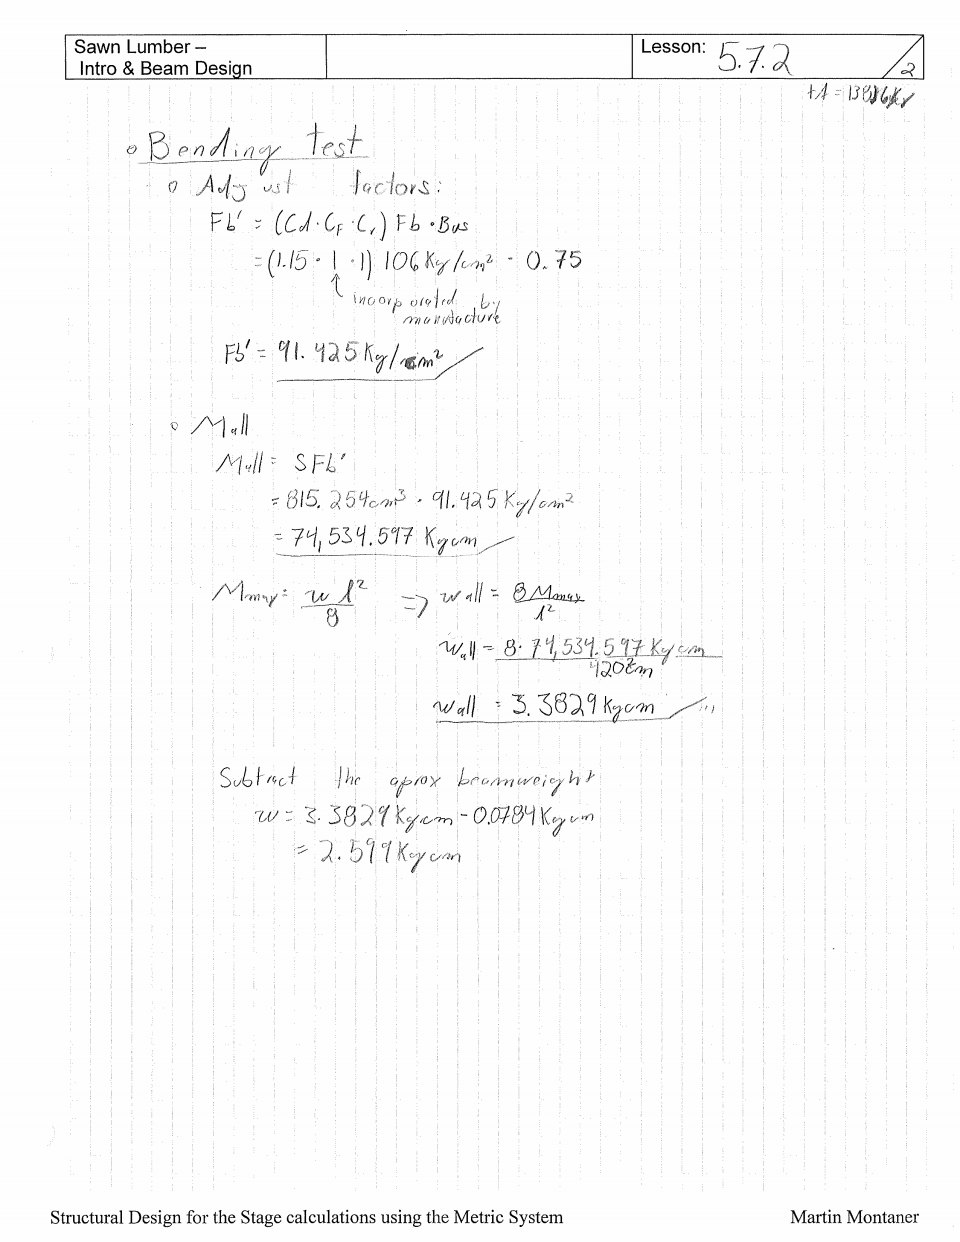 Sawn Lumber –
Intro & Beam Design
Lesson: 5.7.2
/2
∘ Bending test
∘ Adjust factors:
Fb' = (Cd · CF · Cr) Fb · Bus
= (1.15 · 1 · 1) 106 Kg/cm² · 0.75
↑ incorporated by
manufacture
Fb' = 91.425 Kg/cm²
∘ Mall
Mall = SFb'
= 815.254cm³ · 91.425 Kg/cm²
= 74,534.597 Kgcm
Mmax = wl²/8 => wall = 8Mmax/l²
wall = 8·74,534.597 Kgcm/420²cm
wall = 3.3829 Kgcm
Subtract the aprox beamweight
w = 3.3829 Kgcm - 0.0784 Kgcm
= 2.599 Kgcm
Structural Design for the Stage calculations using the Metric System
Martin Montaner